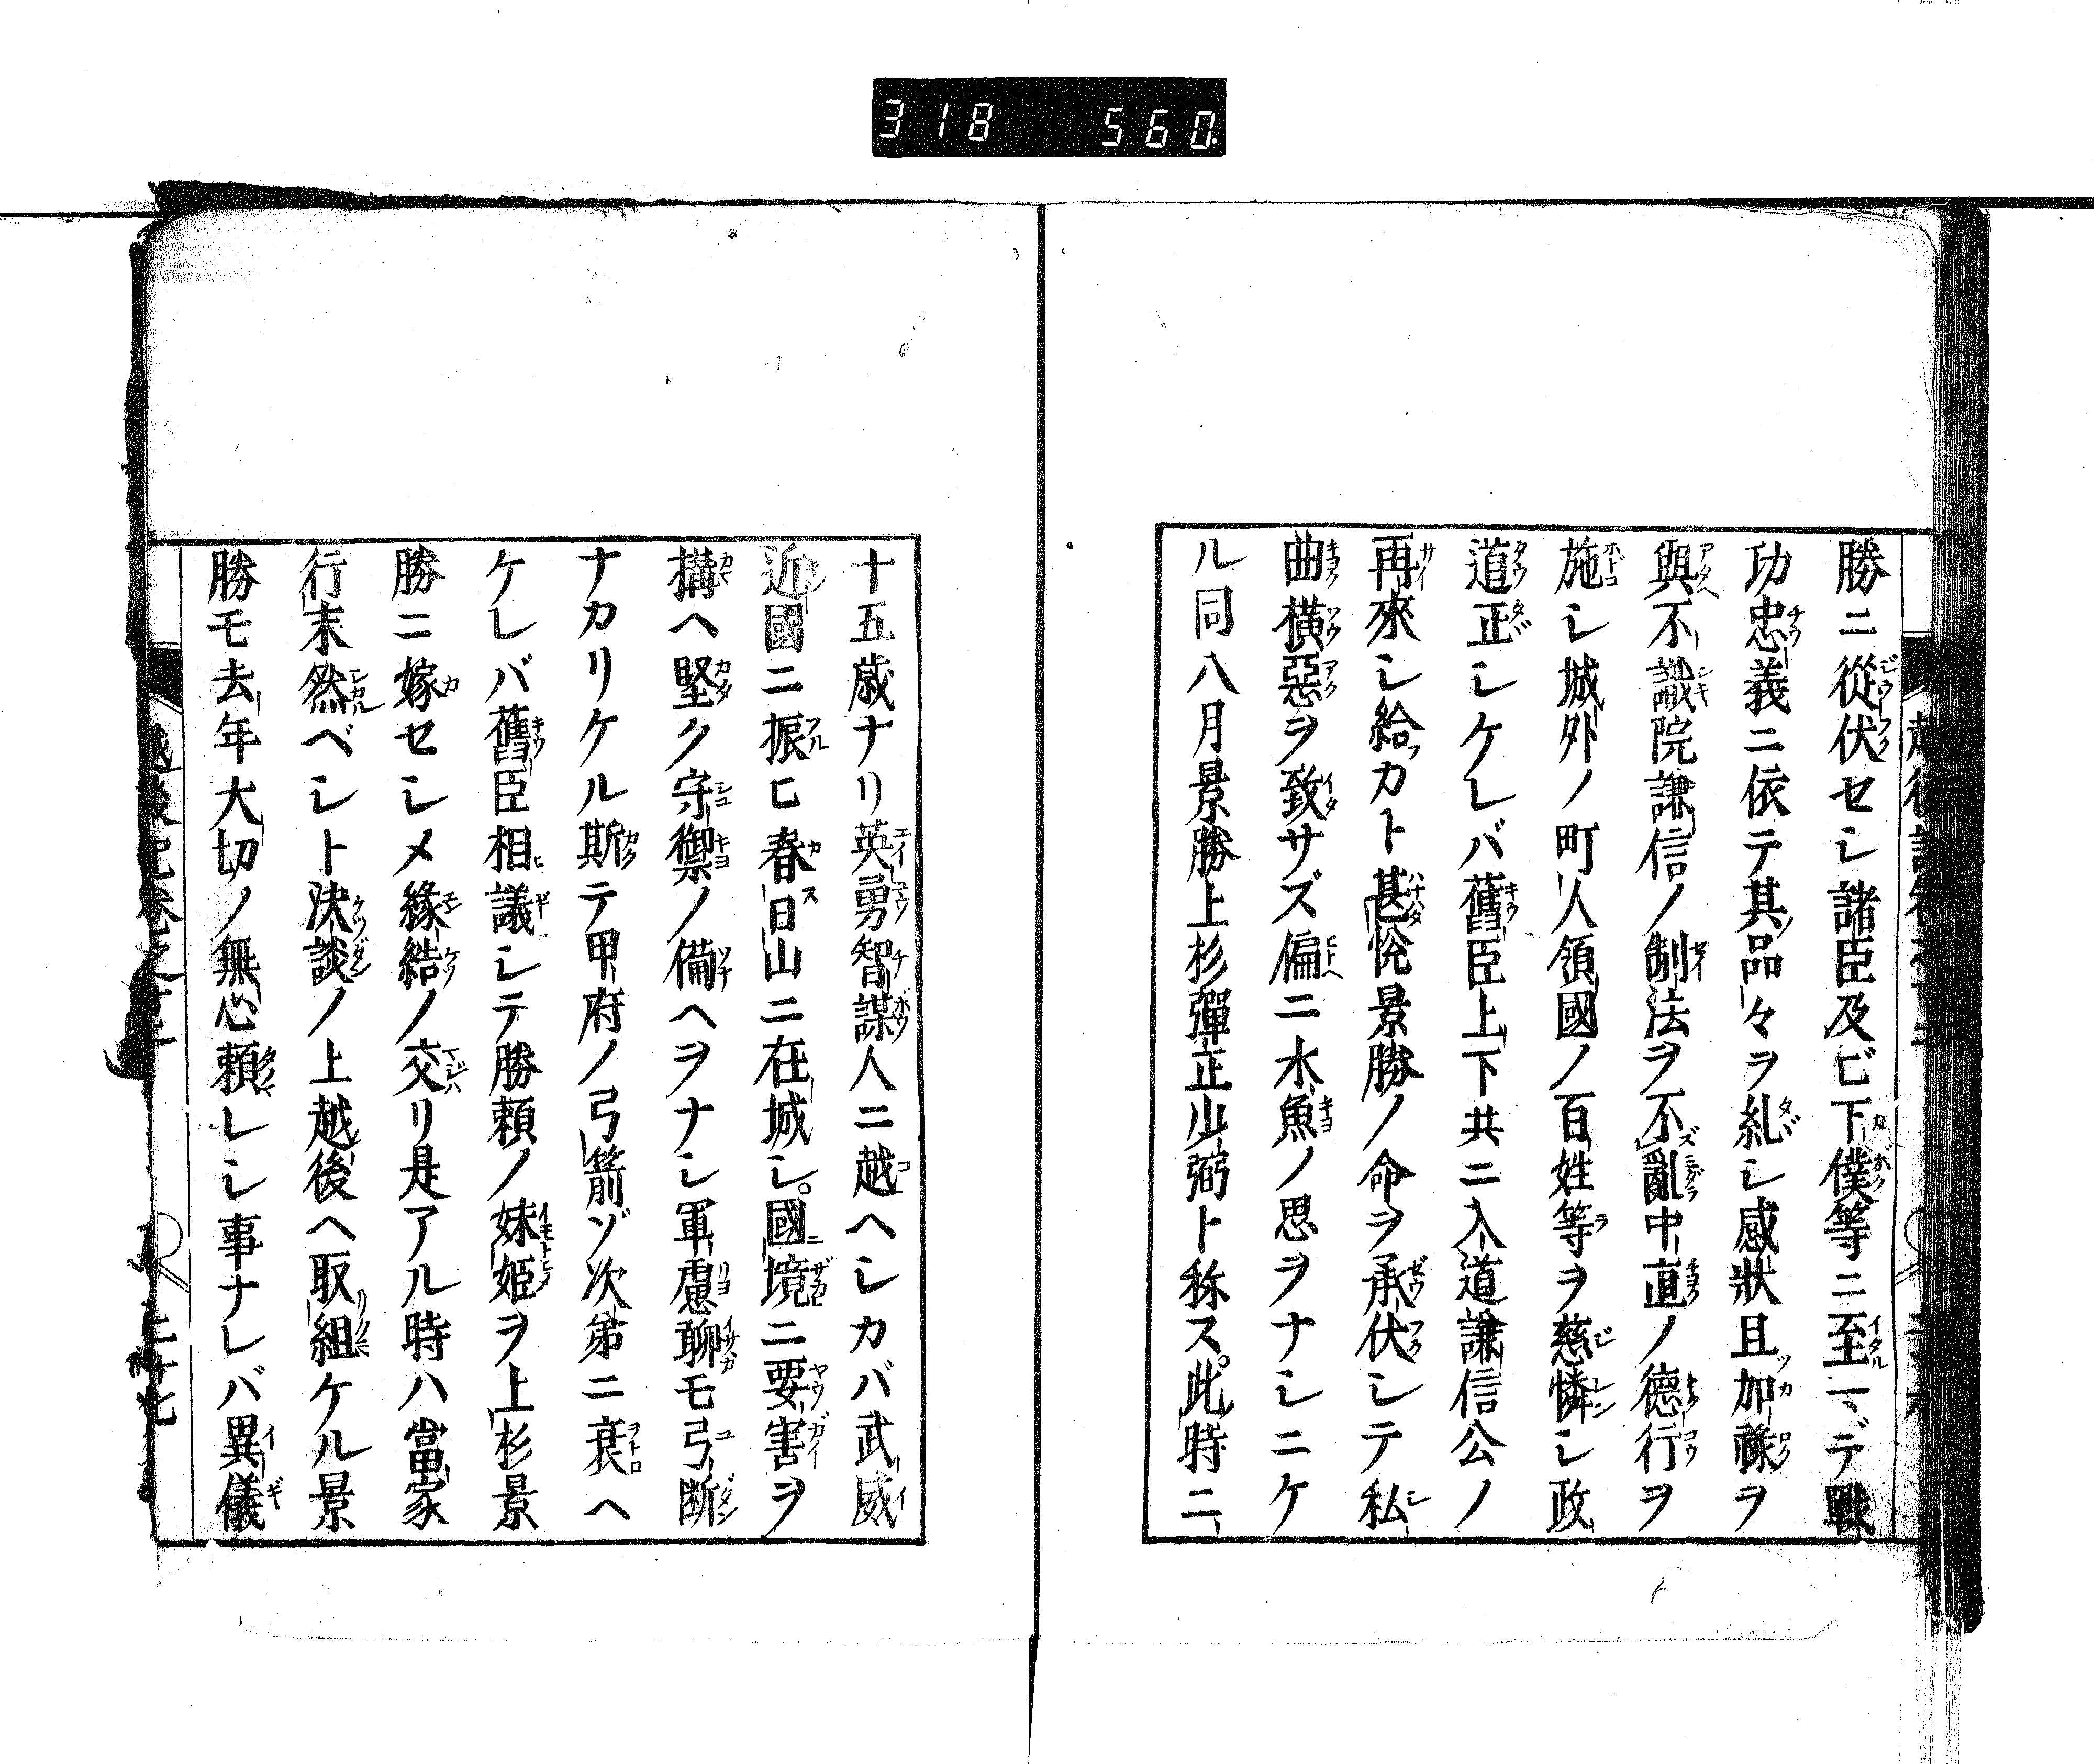 318 560
勝ニ從伏セシ諸臣及ビ下僕等ニ至マデ戰
功忠義ニ依テ其品々ヲ糺シ感狀且加祿ヲ
與不識院謙信ノ制法ヲ不亂中直ノ德行ヲ
施シ城外ノ町人領國ノ百姓等ヲ慈憐シ政
道正シケレバ舊臣上下共ニ入道謙信公ノ
再來シ給カト甚悅景勝ノ命ヲ承伏シテ私
曲橫惡ヲ致サズ偏ニ水魚ノ思ヲナシニケ
ル同八月景勝上杉彈正少弼ト称ス。此時ニ
十五歳ナリ英勇智謀人ニ越ヘシカバ武威
近國ニ振ヒ春日山ニ在城シ。國境ニ要害ヲ
搆ヘ堅ク守禦ノ備ヘヲナシ軍慮聊モ弓断
ナカリケル斯テ甲府ノ弓箭ゾ次第ニ衰ヘ
ケレバ舊臣相議シテ勝頼ノ妹姫ヲ上杉景
勝ニ嫁セシメ緣結ノ交リ是アル時ハ當家
行末然ベシト決談ノ上越後ヘ取組ケル景
勝モ去年大切ノ無心頼レシ事ナレバ異儀
越後記卷之